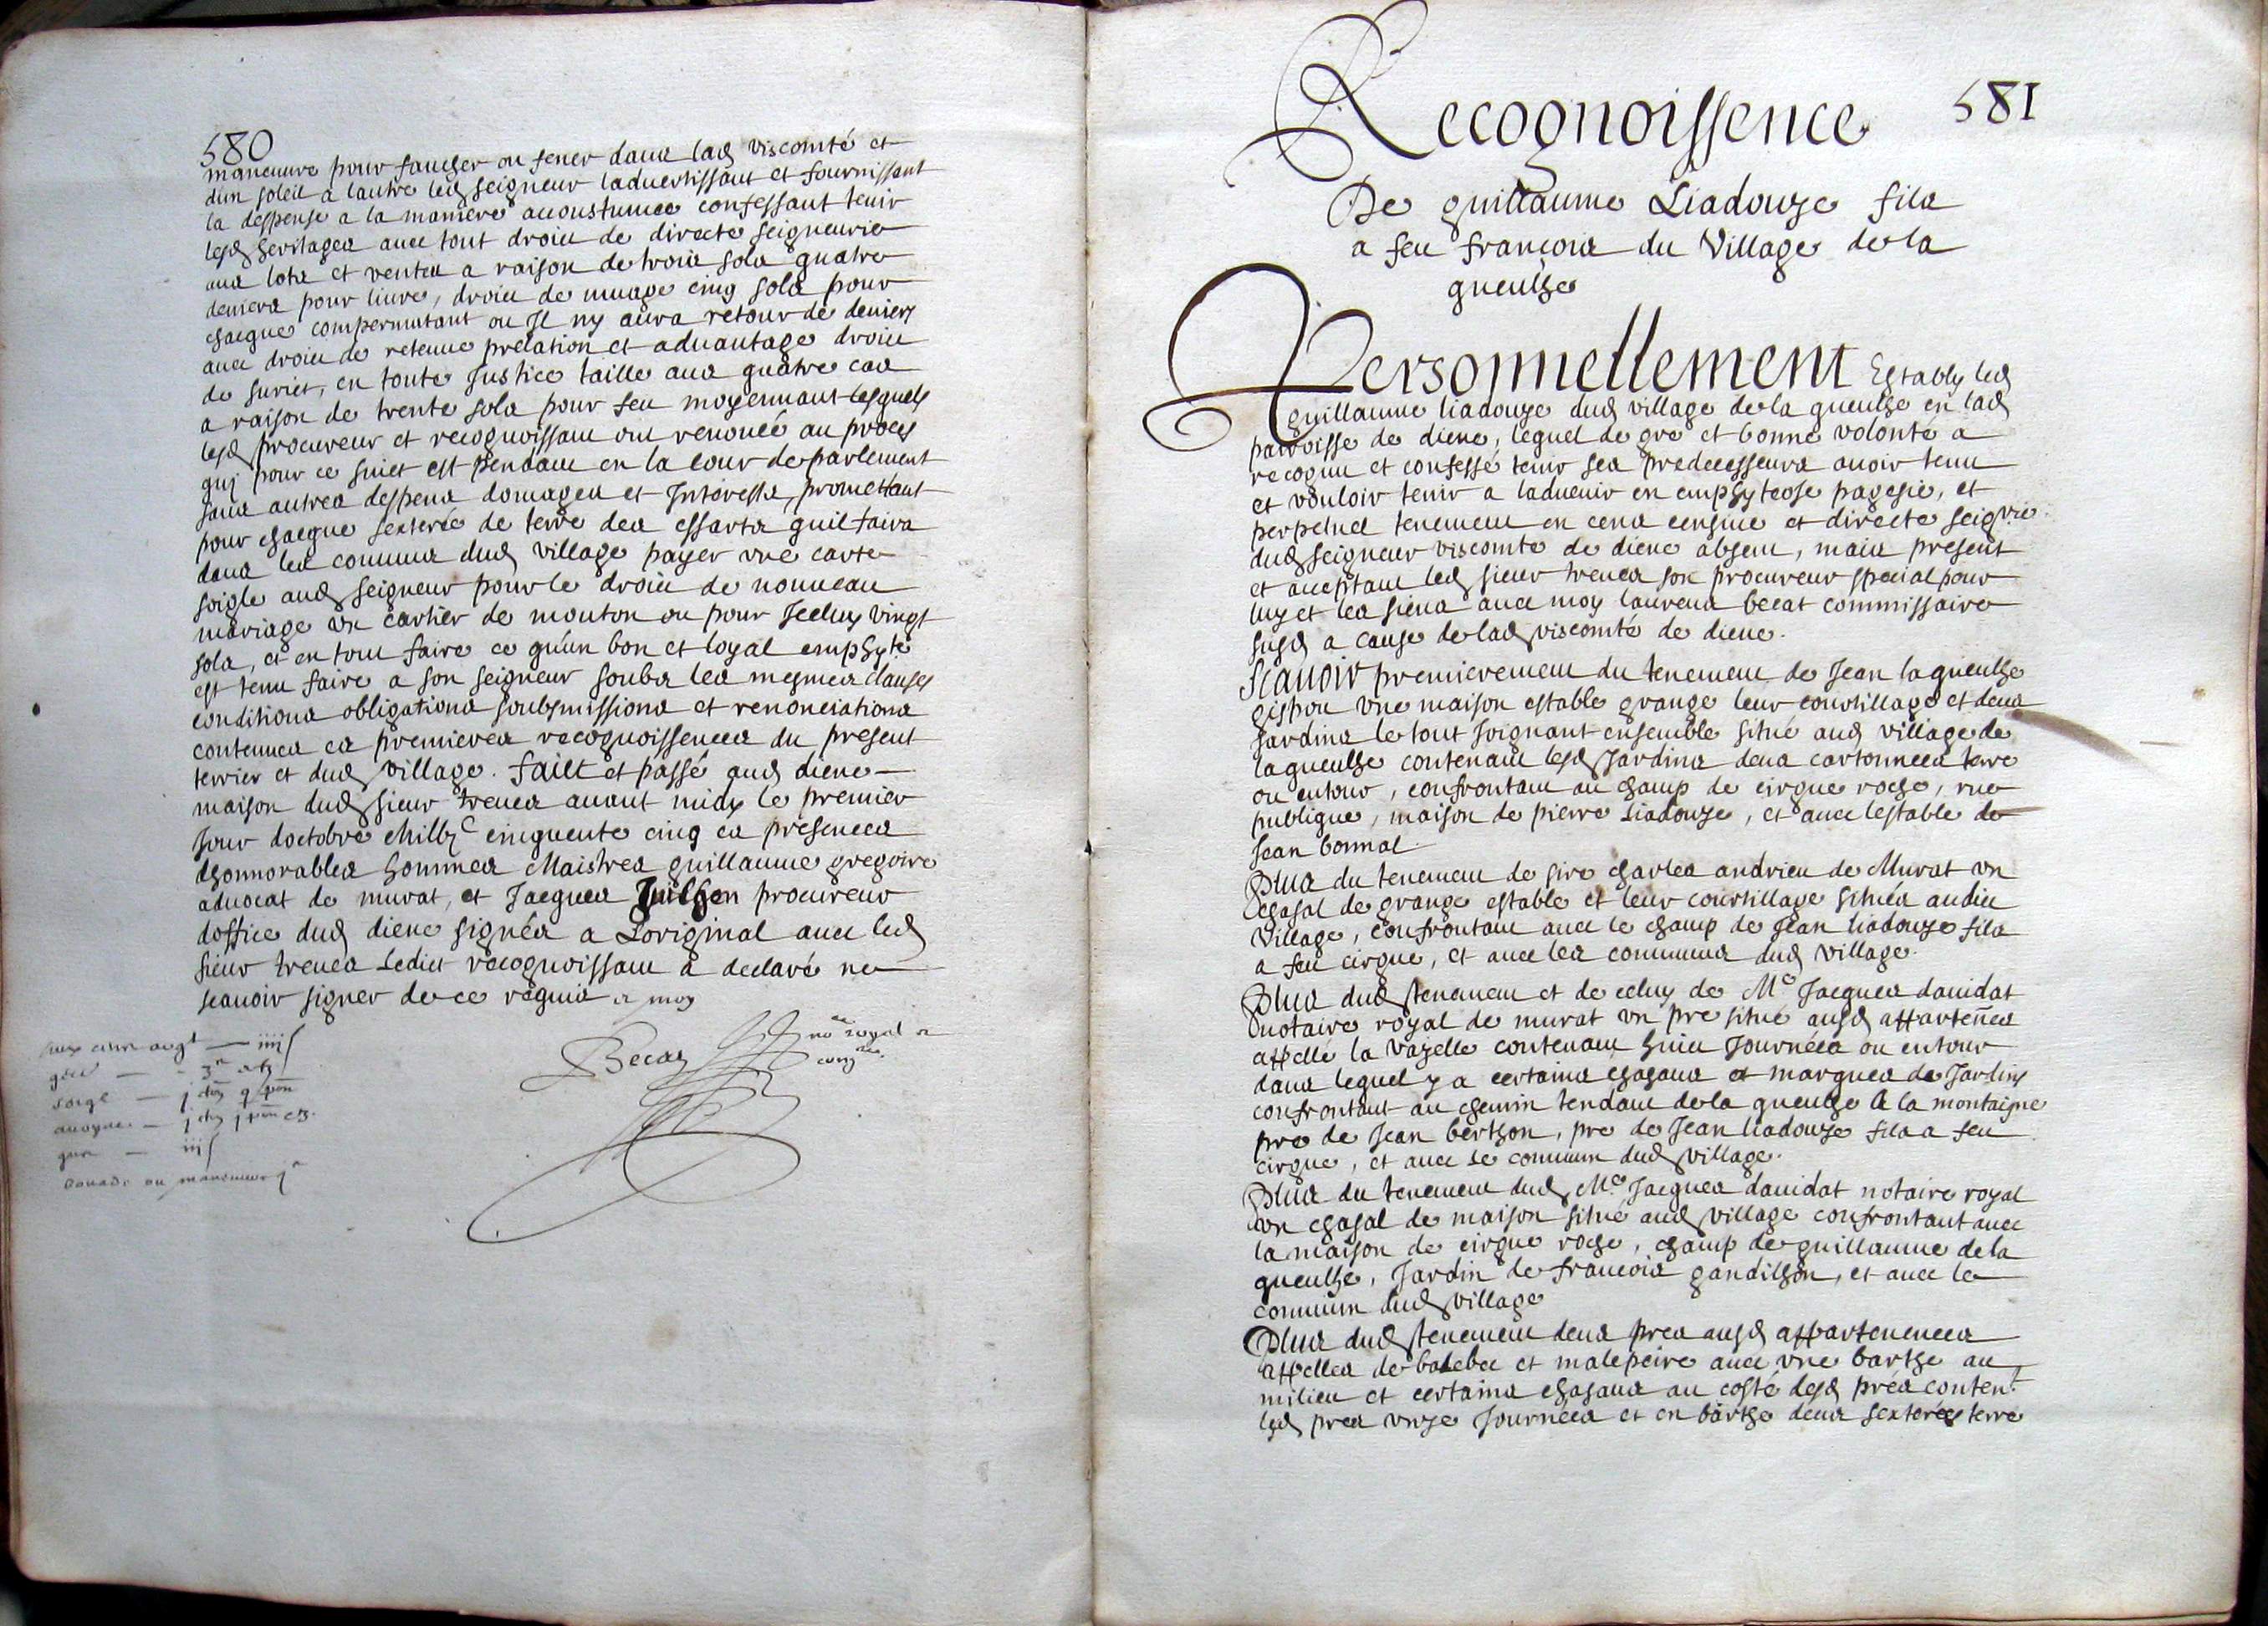 580
maneuure pour faucher ou fener dans lad viscomté et
dun soleil a lautre led seigneur laduertissant et fournissant
la despense a la maniere accoustumee confessant tenir
lesd heritages auec tout droict de directe seigneurie
aux lotz et ventes a raison de trois solz quatre
deniers pour liure, droict de muage cinq solz pour
chacque compermutant ou Il ny aura retour de deniers
auec droict de retenue prelation et aduantage droict
de suriet, en toute Justice taille aux quatre cas
a raison de trente solz pour feu moyennant lesquels
lesd procureur et recognoissant ont renoncé au proces
qui pour ce suiet est pendant en la cour de parlement
sans autres despens domages et Interests, promettant
pour chacque sexterée de terre des essarts quil faira
dans les communs dud village payer vne carte
soigle aud seigneur pour le droict de nouueau
mariage vn cartier de mouton ou pour Iceluy vingt
solz, et en tout faire ce qu'un bon et loyal emphyte
est tenu faire a son seigneur soubz les mesmes clauses
conditions obligations soubsmissions et renonciations
contenues ez premieres recognoissences du present
terrier et dud village. Faict et passé aud diene
maison dud sieur treues auant midy le premier
Jour doctobre Mil vjc cinquente cinq ez presences
dhonnorables hommes Maistres guillaume gregoire
aduocat de murat, et Jacques Juilhen procureur
doffice dud diene signés a Loriginal auec led
sieur treues Ledict recognoissant a declaré ne
scauoir signer de ce requis et moy
Becat nore royal et
comre.
argt — iiij s
soige —
auoyne —
iij s
ou manoeuure j
Recognoissence 581
De guillaume Liadouze filz
a feu francois du Village de la
gueulhe
Personnellement Estably led
guillaume liadouze dud village de la gueulhe en lad
parroisse de diene, lequel de gre et bonne volonté a
recognu et confessé tenir ses predecesseurs auoir tenu
et vouloir tenir a laduenir en emphyteose pagesie, et
perpetuel tenement en cens censiue et directe seigrie
dud seigneur viscomte de diene absent, mais present
et acceptant led sieur treues son procureur special pour
luy et les siens auec moy laurens becat commissaire
susd a cause de lad viscomté de diene.
Scauoir premierement du tenement de Jean lagueulhe
gishou vne maison estable grange leur courtillage et deux
Jardins le tout Joignant ensemble situé aud village de
la gueulhe contenant lesd Jardins deux cartonnees terre
ou entour, confrontant au champ de cirgue roche, rue
publique, maison de pierre Liadouze, et auec lestable de
Jean bonnal.
Plus du tenement de sire charles andrieu de Murat vn
chasal de grange estable et leur courtillage situés audict
Village, confrontant auec le champ de Jean liadouze filz
a feu cirgue, et auec les communs dud village.
Plus dud tenement et de celuy de Me Jacques dauidat
notaire royal de murat vn pre situé ausd apparten̄ces
appellé la vazelle contenant huict Journées ou entour
dans lequel y a certains chasaux et marques de Jardins
confrontant au chemin tendant de la gueulhe a la montaigne
pre de Jean berthon, pre de Jean liadouze filz a feu
cirgue, et auec le commun dud village.
Plus du tenement dud Me Jacques dauidat notaire royal
vn chasal de maison situé aud village confrontant auec
la maison de cirgue roche, champ de guillaume de la
gueulhe, Jardin de francois gandilhon, et auec le
commun dud village
Plus dud tenement deux prez ausd appartenences
appelles de balebec et malepeire auec vne barthe au
milieu et certains chasaux au costé desd prés conten.t
lesd prez vnze Journées et en barthe deux sexterées terre